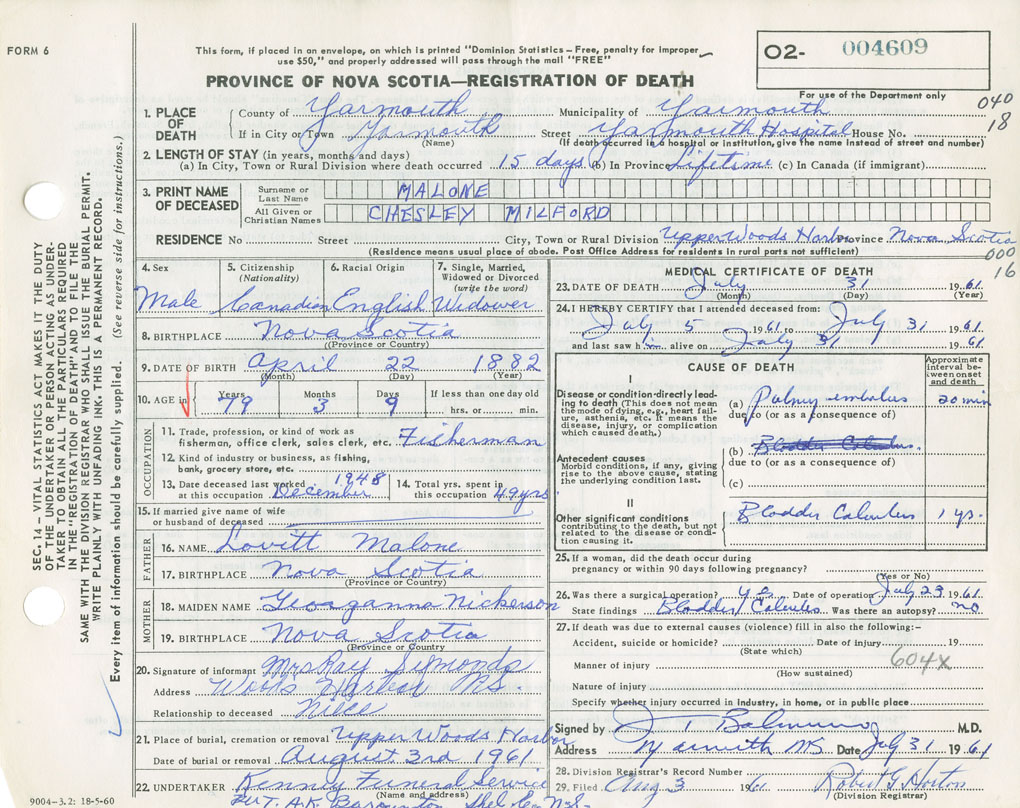 FORM 6
This form, if placed in an envelope, on which is printed "Dominion Statistics – Free, penalty for improper
use $50," and properly addressed will pass through the mail "FREE"
PROVINCE OF NOVA SCOTIA—REGISTRATION OF DEATH
O2- 004609
For use of the Department only
040
18
1. PLACE OF DEATH
County of Yarmouth Municipality of Yarmouth
If in City or Town Yarmouth Street Yarmouth Hospital House No.
(Name) (If death occurred in a hospital or institution, give the name instead of street and number)
2. LENGTH OF STAY (in years, months and days)
(a) In City, Town or Rural Division where death occurred 15 days (b) In Province Lifetime (c) In Canada (if immigrant)
3. PRINT NAME OF DECEASED
Surname or Last Name MALONE
All Given or Christian Names CHESLEY MILFORD
RESIDENCE No Street City, Town or Rural Division Upper Woods Harbor Province Nova Scotia
(Residence means usual place of abode. Post Office Address for residents in rural parts not sufficient)
000
16
4. Sex 5. Citizenship (Nationality) 6. Racial Origin 7. Single, Married, Widowed or Divorced (write the word)
Male Canadian English Widower
8. BIRTHPLACE Nova Scotia
(Province or Country)
9. DATE OF BIRTH April 22 1882
(Month) (Day) (Year)
10. AGE in Years Months Days If less than one day old
79 3 9 hrs. or min.
OCCUPATION
11. Trade, profession, or kind of work as
fisherman, office clerk, sales clerk, etc. Fisherman
12. Kind of industry or business, as fishing,
bank, grocery store, etc.
13. Date deceased last worked at this occupation December 1948 14. Total yrs. spent in this occupation 49 yrs
15. If married give name of wife
or husband of deceased
FATHER
16. NAME Lovitt Malone
17. BIRTHPLACE Nova Scotia
(Province or Country)
MOTHER
18. MAIDEN NAME Georganna Nickerson
19. BIRTHPLACE Nova Scotia
(Province or Country)
20. Signature of informant Mrs Ray Symonds
Address Woods Harbor N.S.
Relationship to deceased Niece
21. Place of burial, cremation or removal Upper Woods Harbor
Date of burial or removal August 3rd 1961
22. UNDERTAKER Kenny Funeral Service
(Name and address)
Barrington Shel Co N-S-
9004-3.2: 18-5-60
MEDICAL CERTIFICATE OF DEATH
23. DATE OF DEATH July 31 19 61
(Month) (Day) (Year)
24. I HEREBY CERTIFY that I attended deceased from:
July 5 1961 to July 31 1961
and last saw him alive on July 31 1961
CAUSE OF DEATH
Approximate interval between onset and death
I
Disease or condition directly leading to death (This does not mean
the mode of dying, e.g., heart failure, asthenia, etc. It means the
disease, injury, or complication
which caused death.)
(a) Pulmy embolus 20 min
due to (or as a consequence of)
Antecedent causes
Morbid conditions, if any, giving
rise to the above cause, stating
the underlying condition last.
(b) Bladder Calculus
due to (or as a consequence of)
(c)
II
Other significant conditions
contributing to the death, but not
related to the disease or condition causing it.
Bladder Calculus 1 yr.
25. If a woman, did the death occur during
pregnancy or within 90 days following pregnancy?
(Yes or No)
26. Was there a surgical operation? yes Date of operation July 23 1961
State findings Bladder Calculus Was there an autopsy? no
27. If death was due to external causes (violence) fill in also the following:-
Accident, suicide or homicide? Date of injury 19
(State which) 604X
Manner of injury
(How sustained)
Nature of injury
Specify whether injury occurred in Industry, in home, or in public place
Signed by M.D.
Address Yarmouth NS Date July 31 1961
28. Division Registrar's Record Number
29. Filed Aug 3 1961 Robert G. Horton
(Division Registrar)
SEC. 14 – VITAL STATISTICS ACT MAKES IT THE DUTY
OF THE UNDERTAKER OR PERSON ACTING AS UNDERTAKER TO OBTAIN ALL THE PARTICULARS REQUIRED
IN THE "REGISTRATION OF DEATH" AND TO FILE THE
SAME WITH THE DIVISION REGISTRAR WHO SHALL ISSUE THE BURIAL PERMIT.
WRITE PLAINLY WITH UNFADING INK. THIS IS A PERMANENT RECORD.
Every item of information should be carefully supplied. (See reverse side for instructions.)